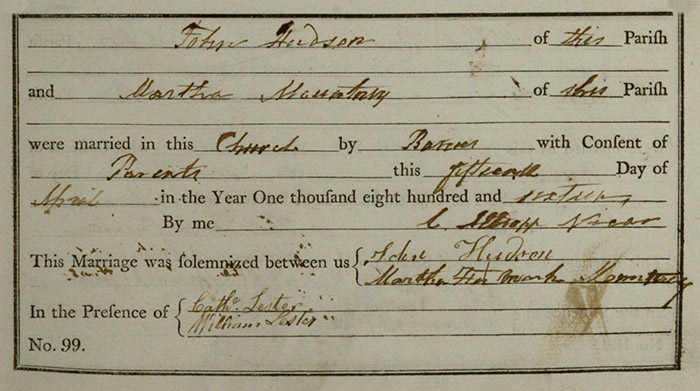 John Hudson of this Pariſh
and Martha Mountney of this Pariſh
were married in this Church by Banns with Conſent of
Parents this fifteenth Day of
April in the Year One thouſand eight hundred and sixteen
By me C. Vicar
This Marriage was ſolemnized between us { John Hudson
Martha Her Mark Mountney
In the Preſence of { Cathe. Lester
William Lester
No. 99.